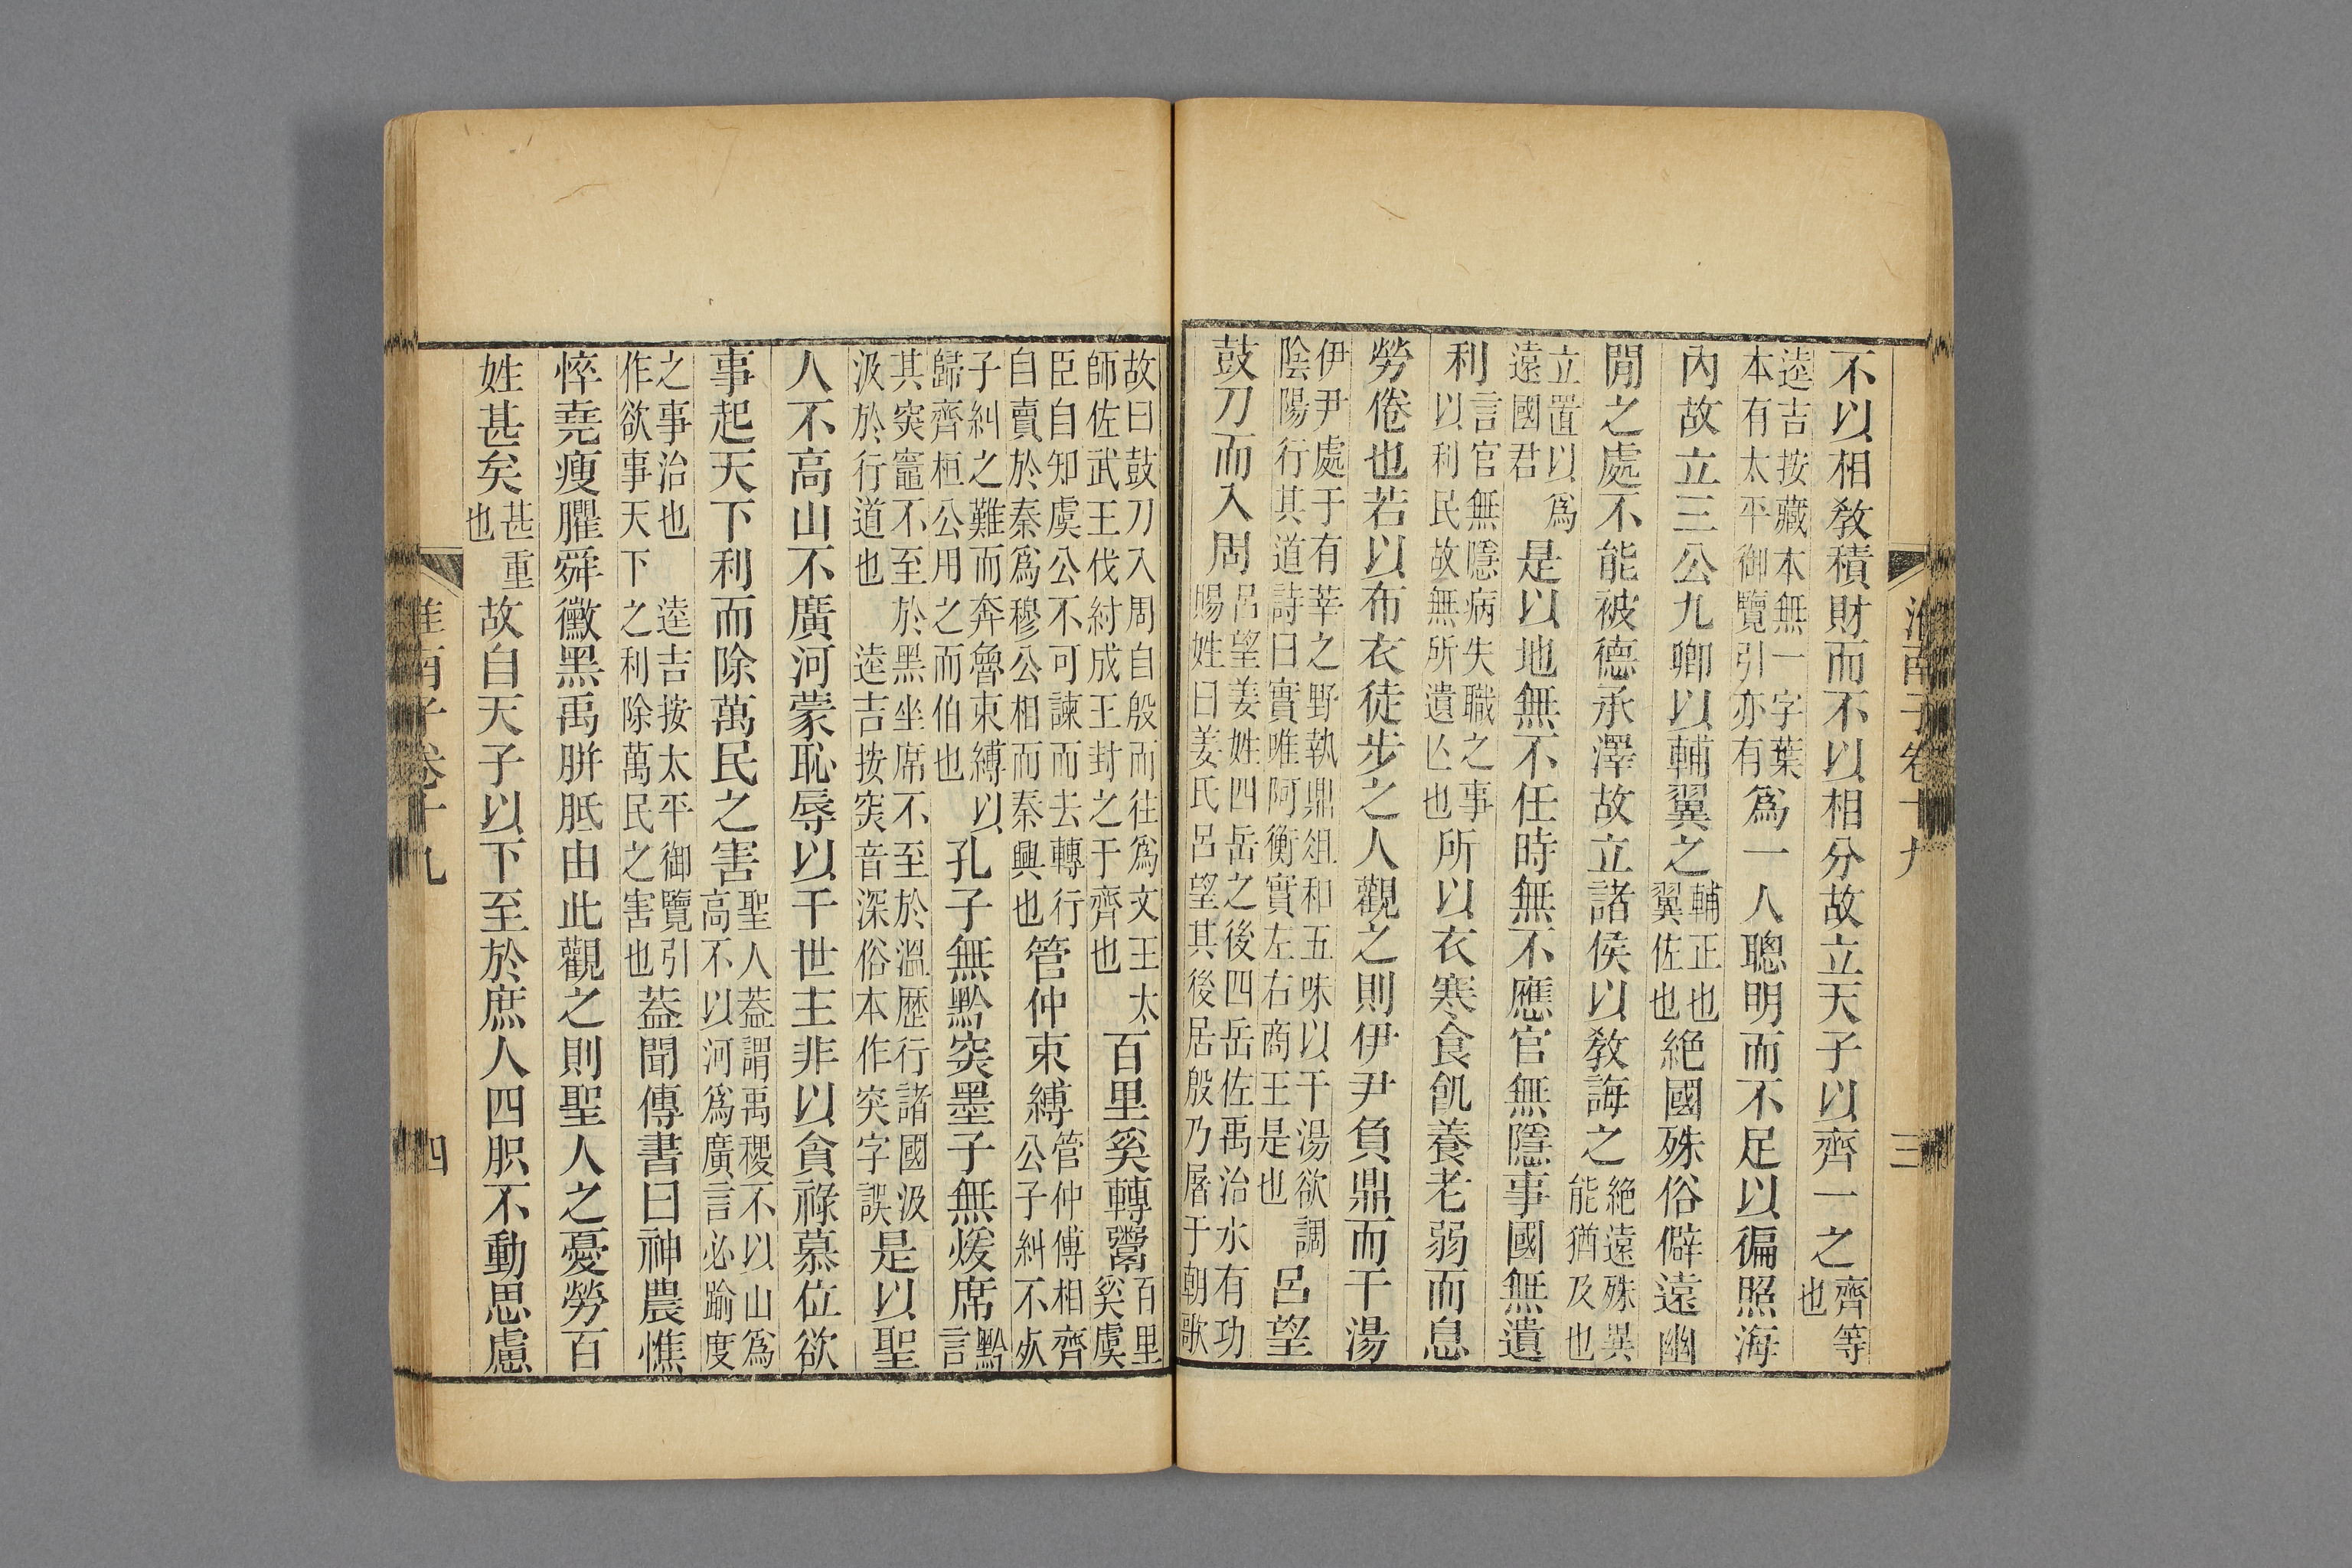 淮南子卷十九 三
不以相敎積財而不以相分故立天子以齊一之齊等也
逵吉按藏本無一字葉本有太平御覽引亦有爲一人聰明而不足以徧照海
內故立三公九卿以輔翼之輔正也翼佐也絕國殊俗僻遠幽
閒之處不能被德承澤故立諸侯以敎誨之絕遠殊異能猶及也
立置以爲遠國君是以地無不任時無不應官無隱事國無遺
利言官無隱病失職之事以利民故無所遺亾也所以衣寒食飢養老弱而息
勞倦也若以布衣徒步之人觀之則伊尹負鼎而干湯
伊尹處于有莘之野執鼎俎和五味以干湯欲調陰陽行其道詩曰實唯阿衡實左右商王是也呂望
鼓刀而入周呂望姜姓四岳之後四岳佐禹治水有功賜姓曰姜氏呂望其後居殷乃屠于朝歌
故曰鼓刀入周自殷而往爲文王太師佐武王伐紂成王封之于齊也百里奚轉鬻百里奚虞
臣自知虞公不可諫而去轉行自賣於秦爲穆公相而秦興也管仲束縛管仲傅相齊公子糾不死
子糾之難而奔魯束縛以歸齊桓公用之而伯也孔子無黔突墨子無煖席黔言
其突竈不至於黑坐席不至於溫歷行諸國汲汲於行道也逵吉按突音深俗本作突字誤是以聖
人不高山不廣河蒙恥辱以干世主非以貪祿慕位欲
事起天下利而除萬民之害聖人蓋謂禹稷不以山爲高不以河爲廣言必踰度
之事治也逵吉按太平御覽引作欲事天下之利除萬民之害也蓋聞傳書曰神農憔
悴堯瘦臞舜黴黑禹胼胝由此觀之則聖人之憂勞百
姓甚矣甚重也故自天子以下至於庶人四胑不動思慮
淮南子卷十九 四